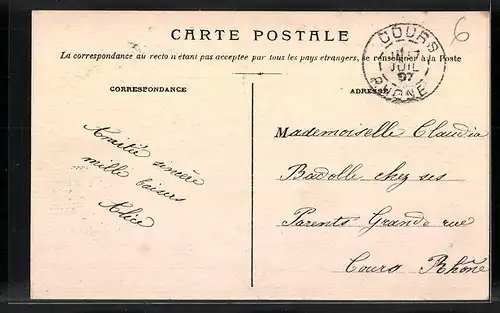 CARTE POSTALE
La correspondance au recto n'étant pas acceptée par tous les pays étrangers, se renseigner à la Poste
COURS
JUIL
RHONE
6
CORRESPONDANCE
ADRESSE
Amitié sincère
mille baisers
Alice
Mademoiselle Claudia
Badolle chez ses
Parents Grande rue
Cours Rhône